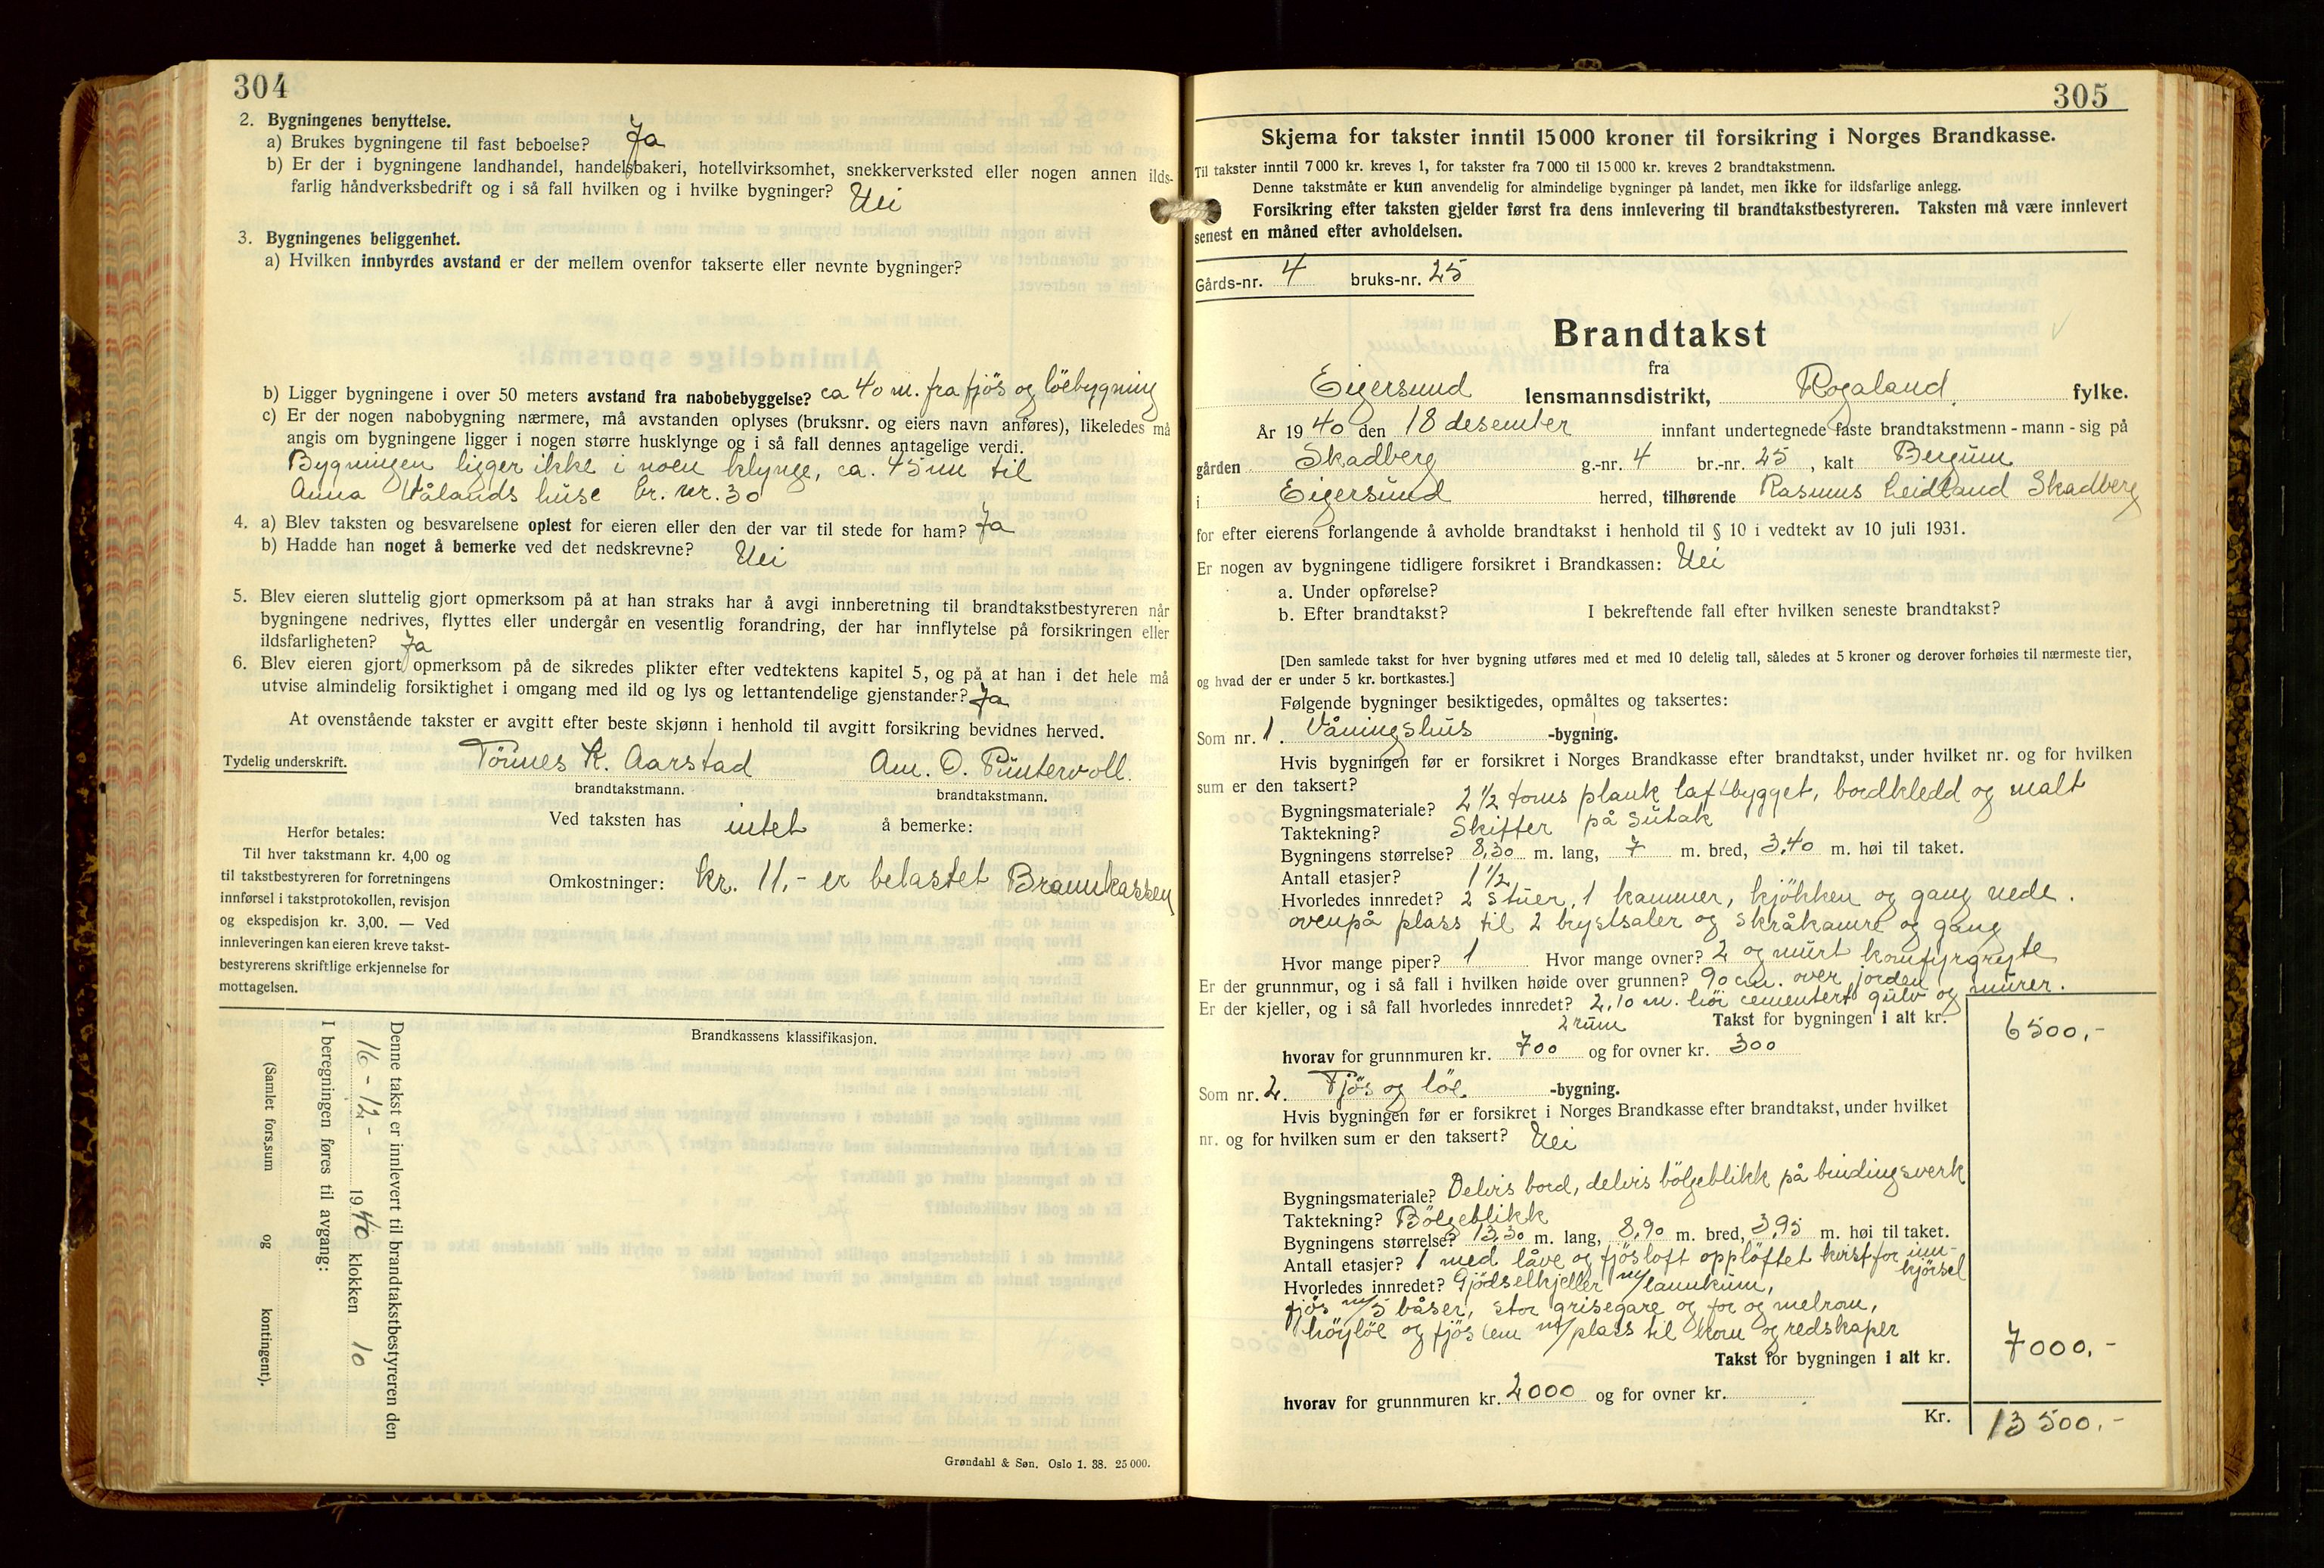 304
2. Bygningenes benyttelse.
a) Brukes bygningene til fast beboelse? Ja
b) Er der i bygningene landhandel, handelsbakeri, hotellvirksomhet, snekkerverksted eller nogen annen ilds-
farlig håndverksbedrift og i så fall hvilken og i hvilke bygninger? Nei
3. Bygningenes beliggenhet.
a) Hvilken innbyrdes avstand er der mellem ovenfor takserte eller nevnte bygninger?
b) Ligger bygningene i over 50 meters avstand fra nabobebyggelse? ca 40 m. fra fjös og löebygning
c) Er der nogen nabobygning nærmere, må avstanden oplyses (bruksnr. og eiers navn anføres), likeledes må
angis om bygningene ligger i nogen større husklynge og i så fall dennes antagelige verdi.
Bygningen ligger ikke i noen klynge, ca. 45 m til
Anna Vålands huse br. nr. 30
4. a) Blev taksten og besvarelsene oplest for eieren eller den der var til stede for ham? Ja
b) Hadde han noget å bemerke ved det nedskrevne? Nei
5. Blev eieren sluttelig gjort opmerksom på at han straks har å avgi innberetning til brandtakstbestyreren når
bygningene nedrives, flyttes eller undergår en vesentlig forandring, der har innflytelse på forsikringen eller
ildsfarligheten? Ja
6. Blev eieren gjort opmerksom på de sikredes plikter efter vedtektens kapitel 5, og på at han i det hele må
utvise almindelig forsiktighet i omgang med ild og lys og lettantendelige gjenstander? Ja
At ovenstående takster er avgitt efter beste skjønn i henhold til avgitt forsikring bevidnes herved.
Tydelig underskrift. Tönnes K. Aarstad Am. O. Püntervoll.
brandtakstmann. brandtakstmann.
Ved taksten has intet å bemerke:
Herfor betales:
Til hver takstmann kr. 4,00 og
til takstbestyreren for forretningens
innførsel i takstprotokollen, revisjon
og ekspedisjon kr. 3,00. — Ved
innleveringen kan eieren kreve takst-
bestyrerens skriftlige erkjennelse for
mottagelsen.
Omkostninger: kr. 11,- er belastet Brannkassen
Brandkassens klassifikasjon.
Denne takst er innlevert til brandtakstbestyreren den
16 - 12 - 1940 klokken 10
I beregningen føres til avgang:
(Samlet fors.sum og kontingent).
Grøndahl & Søn. Oslo 1. 38. 25 000.
305
Skjema for takster inntil 15 000 kroner til forsikring i Norges Brandkasse.
Til takster inntil 7 000 kr. kreves 1, for takster fra 7 000 til 15 000 kr. kreves 2 brandtakstmenn.
Denne takstmåte er kun anvendelig for almindelige bygninger på landet, men ikke for ildsfarlige anlegg.
Forsikring efter taksten gjelder først fra dens innlevering til brandtakstbestyreren. Taksten må være innlevert
senest en måned efter avholdelsen.
Gårds-nr. 4 bruks-nr. 25
Brandtakst
fra
Eigersund lensmannsdistrikt, Rogaland. fylke.
År 1940 den 18 desember innfant undertegnede faste brandtakstmenn - mann - sig på
gården Skadberg g.-nr. 4 br.-nr. 25, kalt Bergum
i Eigersund herred, tilhørende Rasmus Leidland Skadberg
for efter eierens forlangende å avholde brandtakst i henhold til § 10 i vedtekt av 10 juli 1931.
Er nogen av bygningene tidligere forsikret i Brandkassen: Nei
a. Under opførelse?
b. Efter brandtakst? I bekreftende fall efter hvilken seneste brandtakst?
[Den samlede takst for hver bygning utføres med et med 10 delelig tall, således at 5 kroner og derover forhøies til nærmeste tier,
og hvad der er under 5 kr. bortkastes.]
Følgende bygninger besiktigedes, opmåltes og taksertes:
Som nr. 1. Våningshus -bygning.
Hvis bygningen før er forsikret i Norges Brandkasse efter brandtakst, under hvilket nr. og for hvilken
sum er den taksert?
Bygningsmateriale? 2 1/2 toms plank laftbygget, bordkledd og malt
Taktekning? Skifter på sutak
Bygningens størrelse? 8,30 m. lang, 7 m. bred, 3,40 m. høi til taket.
Antall etasjer? 1 1/2
Hvorledes innredet? 2 stuer, 1 kammer, kjökken og gang nede.
ovenpå plass til 2 brystsaler og skråkamre og gang
Hvor mange piper? 1 Hvor mange ovner? 2 og murt komfyrgryte
Er der grunnmur, og i så fall i hvilken høide over grunnen? 90 cm. over jorden
Er der kjeller, og i så fall hvorledes innredet? 2,10 m. höi cementert gulv og murer.
2 rum Takst for bygningen i alt kr. 6500,-
hvorav for grunnmuren kr. 700 og for ovner kr. 300
Som nr. 2. Fjös og löe -bygning.
Hvis bygningen før er forsikret i Norges Brandkasse efter brandtakst, under hvilket
nr. og for hvilken sum er den taksert? Nei
Bygningsmateriale? Delvis bord, delvis bölgeblikk på bindingsverk
Taktekning? Bölgeblikk
Bygningens størrelse? 13,30 m. lang, 8,90 m. bred, 3,95 m. høi til taket.
Antall etasjer? 1 med låve og fjösloft opplöftet kvist for inn-
kjörsel
Hvorledes innredet? Gjödselkjeller m/lannkum,
fjös m/5 båser, stor grisegare og for og melrom,
höylöe og fjöslem m/plass til korn og redskaper
Takst for bygningen i alt kr. 7000,-
hvorav for grunnmuren kr. 2000 og for ovner kr.
Kr. 13500,-